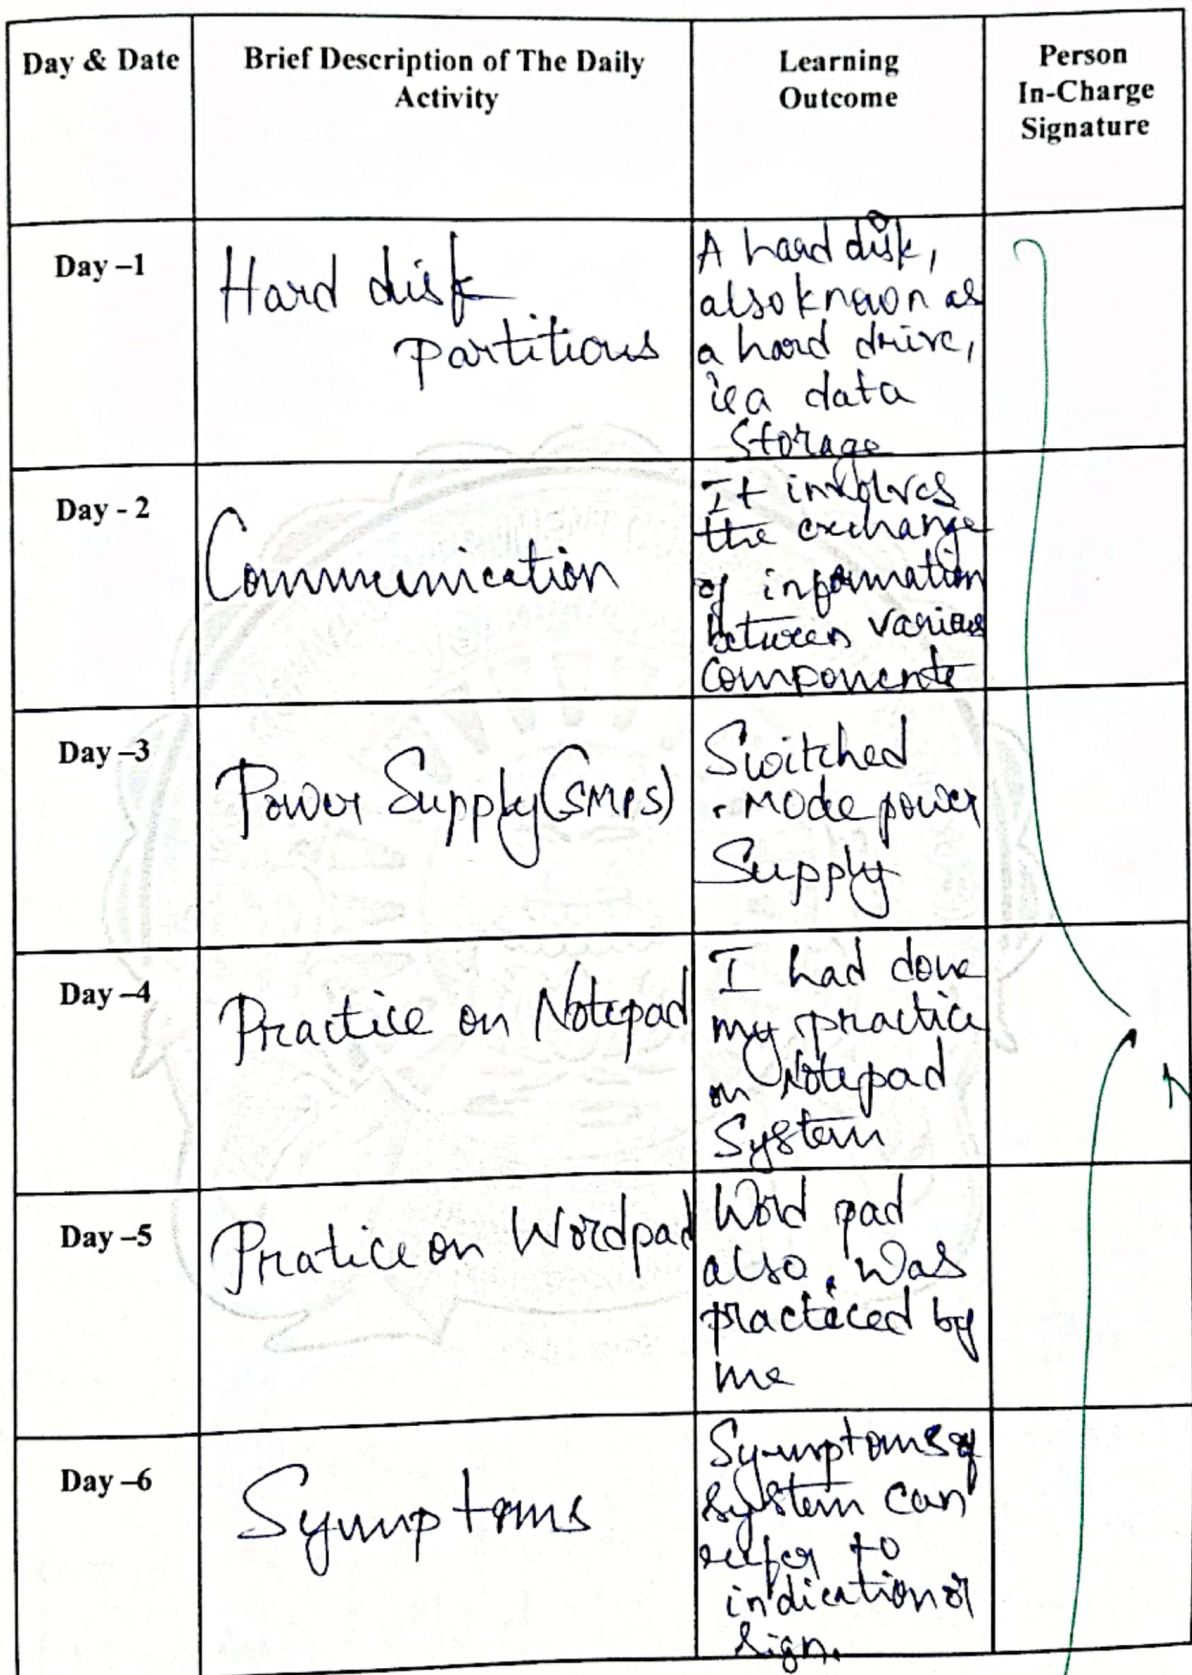 Day & Date
Brief Description of The Daily
Activity
Learning
Outcome
Person
In-Charge
Signature
Day –1
Hard disk
partitions
A hard disk,
also known as
a hard drive,
is a data
Storage
Day - 2
Communication
It involves
the exchange
of information
between various
Components
Day –3
Power Supply (SMPS)
Switched
-Mode power
Supply
Day –4
Practice on Notepad
I had done
my practice
on Notepad
System
Day –5
Pratice on Wordpad
Word pad
also. Was
practiced by
me
Day –6
Symptoms
Symptoms of
System can
refer to
indication or
Sign.